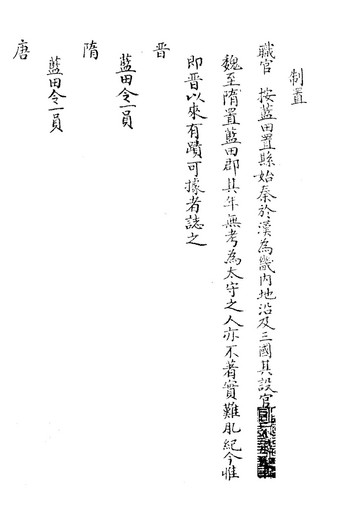 制置
職官 按藍田置縣始秦於漢為畿內地沿及三國其設官
魏至隋置藍田郡其年無考為太守之人亦不著實難肊紀今惟
即晉以來有蹟可據者誌之
晉
藍田令一員
隋
藍田令一員
唐
藍田令一員